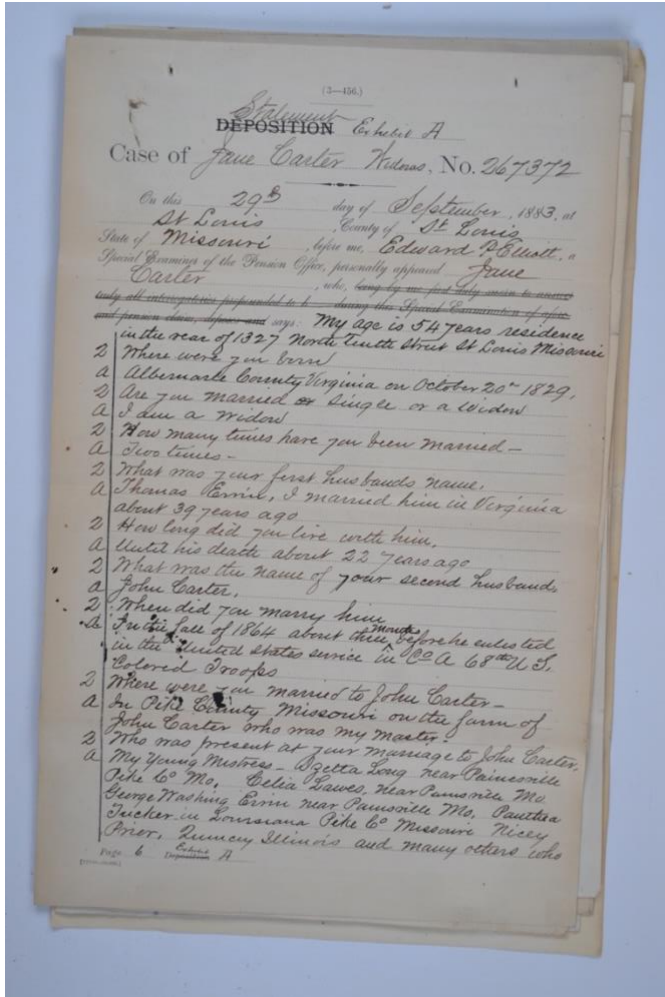 (3—456.)
Statement
DEPOSITION Exhibit A
Case of Jane Carter Widows, No. 267372
On this 29th day of September, 1883, at
St Louis, County of St Louis
State of Missouri, before me, Edward P Elliott, a
Special Examiner of the Pension Office, personally appeared Jane
Carter, who, being by me first duly sworn to answer
truly all interrogatories propounded to h during this Special Examination of afore-
said pension claim, deposes and says: My age is 54 years residence
in the rear of 1327 North Tenth Street St Louis Missouri
Q Where were you born
A Albemarle County Virginia on October 20th 1829.
Q Are you married or Single or a Widow
A I am a widow
Q How many times have you been married —
A Two times —
Q What was your first husbands name.
A Thomas Ervin, I married him in Virginia
about 39 years ago
Q How long did you live with him.
A Until his death about 22 years ago
Q What was the name of your second husband.
A John Carter.
Q When did you marry him
A In the fall of 1864 about three months before he enlisted
in the United States service in Co A 68th U S.
Colored Troops
Q Where were you married to John Carter —
A In Pike County Missouri on the farm of
John Carter who was my Master.
Q Who was present at your marriage to John Carter.
A My Young Mistress — Ozetta Long near Painesville
Pike Co Mo. Celia Lawes, near Painsville Mo
George Washing Ervin near Painsville Mo. Panthea
Tucker in Louisiana Pike Co Missouri Nicey
Prior, Quincy Illinois and many others who
Page 6 Exhibit Deposition A